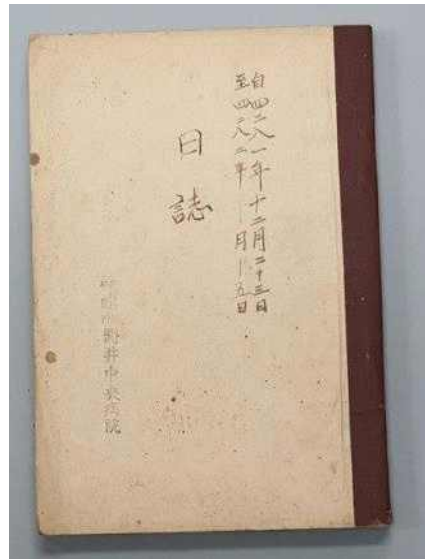 自四二八一年十二月二十三日
至四二八二年一月十五日
日誌
井中央病院